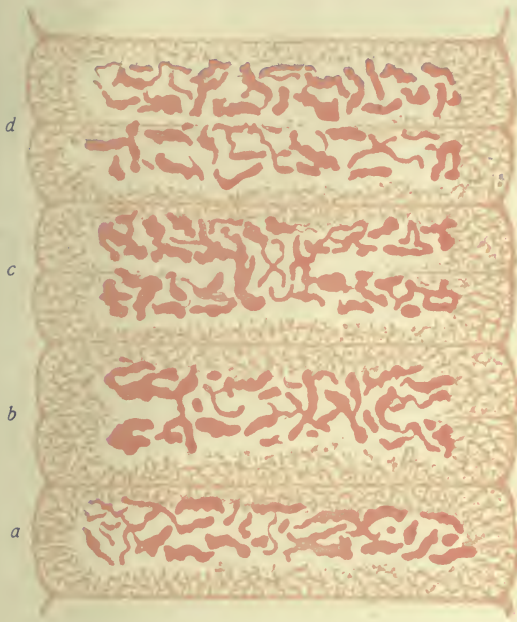 d
c
b
a